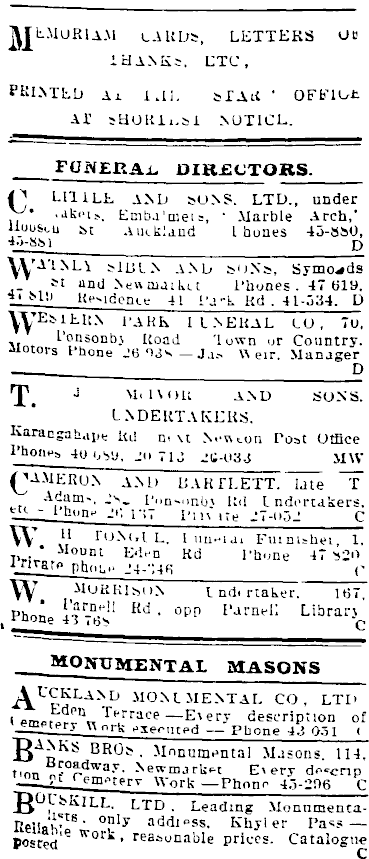 MEMORIAM CARDS, LETTERS OF
THANKS, ETC.,
PRINTED AT THE "STAR" OFFICE
AT SHORTEST NOTICE.
FUNERAL DIRECTORS.
C. LITTLE AND SONS, LTD., under
takers, Embalmers, "Marble Arch,"
Hobson St Auckland Phones 45-880,
45-881 D
WATNEY SIBUN AND SONS, Symonds
St and Newmarket Phones. 47 619,
47 819 Residence 41 Park Rd. 41-534. D
WESTERN PARK FUNERAL CO, 70,
Ponsonby Road Town or Country.
Motors Phone 26 938 — Jas Weir, Manager
D
T. J McIVOR AND SONS,
UNDERTAKERS,
Karangahape Rd next Newton Post Office
Phones 40 689, 20 713 26-033 MW
CAMERON AND BARTLETT, late T
Adams, Ponsonby Rd Undertakers,
etc - Phone 26 137 Private 27-052 C
W. H TONGUE, Funeral Furnisher, 1,
Mount Eden Rd Phone 47 820
Private phone 24-346 C
W. MORRISON Undertaker, 167,
Parnell Rd, opp Parnell Library
Phone 43 768 C
MONUMENTAL MASONS
AUCKLAND MONUMENTAL CO, LTD
Eden Terrace — Every description of
Cemetery Work executed — Phone 43 051 C
BANKS BROS, Monumental Masons, 114,
Broadway, Newmarket Every descrip
tion of Cemetery Work — Phone 45-296 C
BOUSKILL, LTD, Leading Monumenta-
lists, only address, Khyber Pass —
Reliable work, reasonable prices. Catalogue
posted C